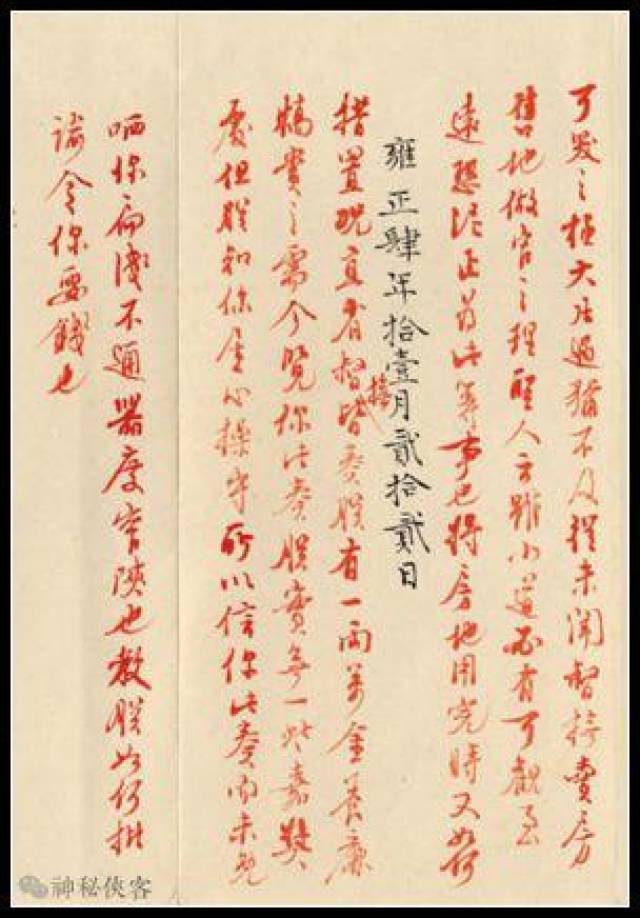 可发之極大凡過猶不及從未聞督撫賣房
售地做官之理聖人云雖小道必有可觀致
遠恐泥正為此等事也將房地用完時又如何
雍正肆年拾壹月貳拾貳日
措置現直省督撫皆奏朕有一兩萬金養廉
犒賞之需今覽你此奏朕實無一些嘉獎
處但朕知你居心操守所以信你此奏內未免
哂你扁淺不通器度窄陝也教朕如何批
諭令你要錢也
神秘俠客